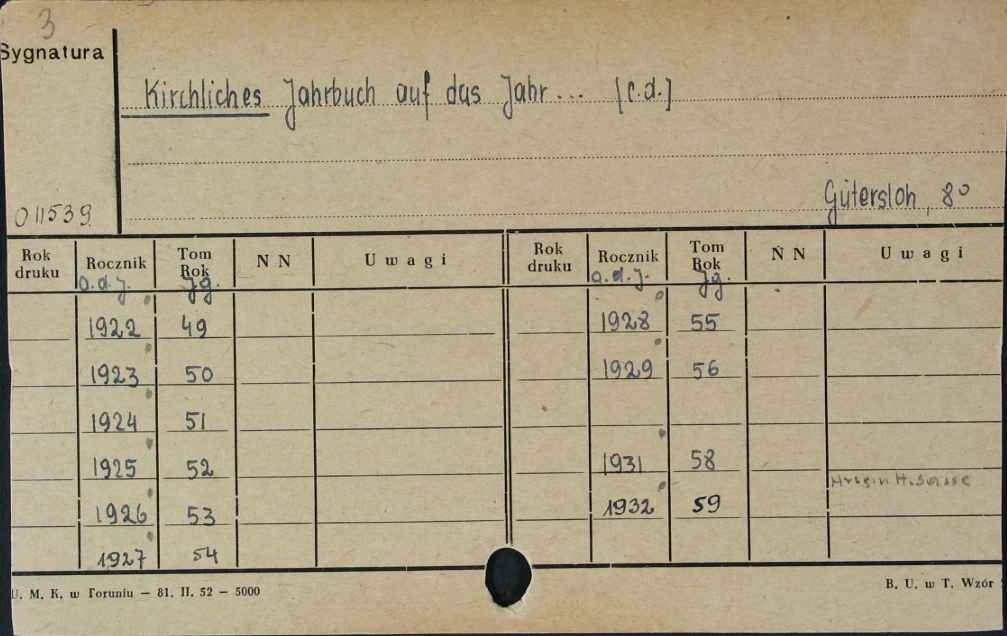 3
Sygnatura
Kirchliches Jahrbuch auf das Jahr... [c.d.]
Gütersloh, 8°
011539
Rok druku Rocznik Tom Rok N N Uwagi Rok druku Rocznik Tom Rok N N Uwagi
a.d.J. Jg. a.d.J. Jg.
1922 49 1928 55
1923 50 1929 56
1924 51
1925 52 1931 58
1926 53 1932 59
1927 54
U. M. K. w Toruniu — 81. II. 52 — 5000
B. U. w T. Wzór